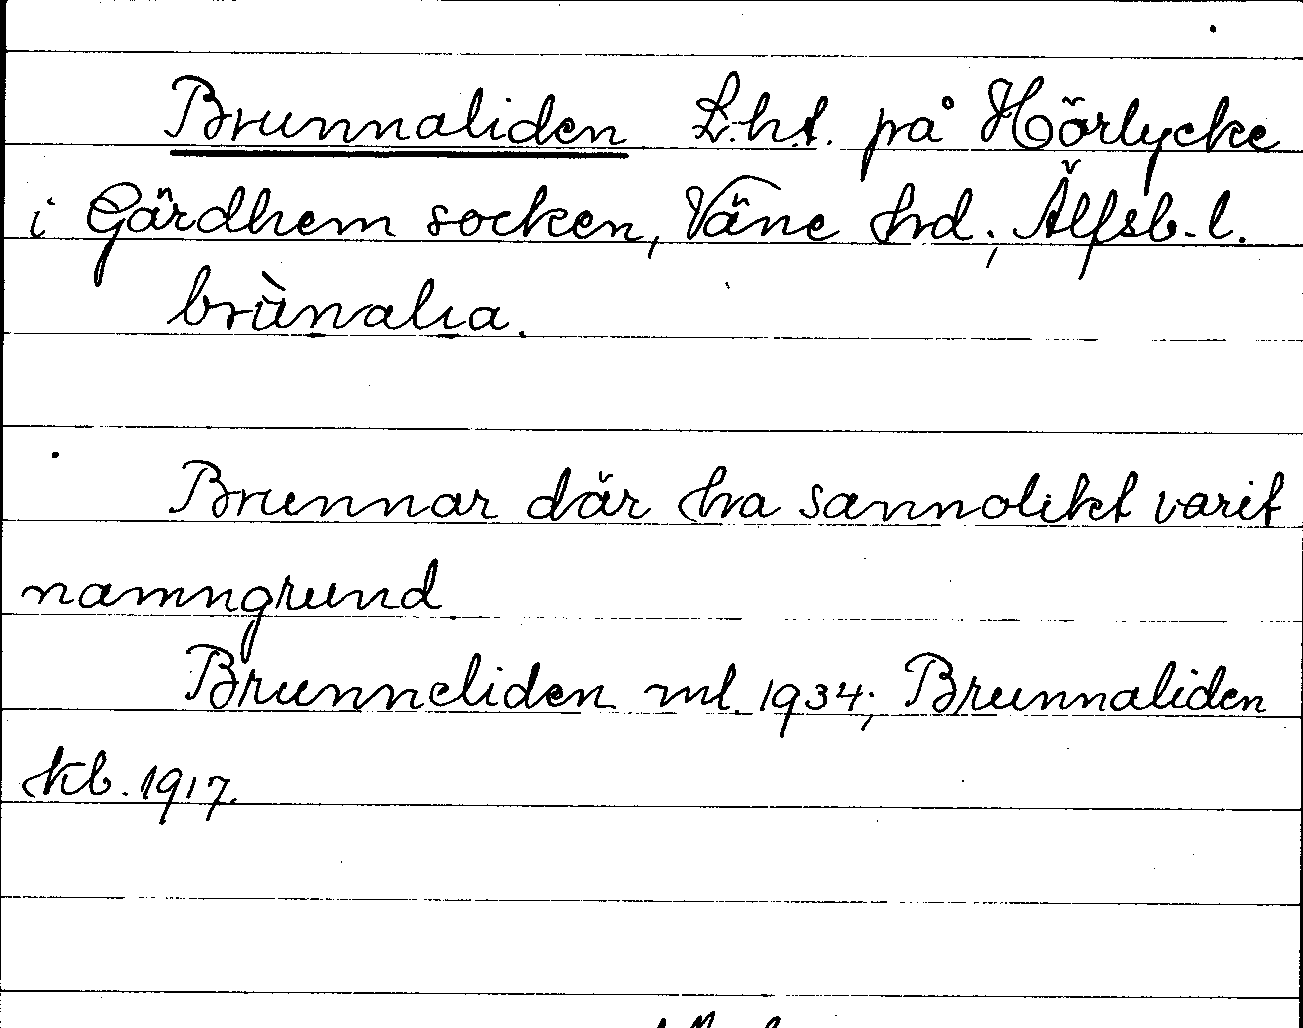 Brunnaliden L.h.t. på Hörlycke
i Gärdhem socken, Väne hd.; Älfsb. l.
brùnalıa.
Brunnar där ha sannolikt varit
namngrund.
Brunneliden ml. 1934; Brunnaliden
kb. 1917.